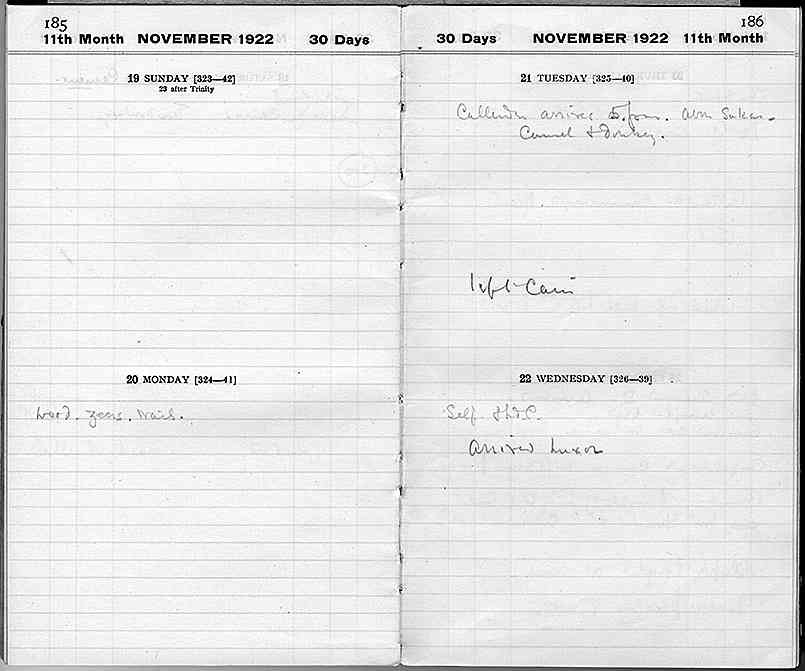 185
11th Month NOVEMBER 1922 30 Days
19 SUNDAY [323—42]
23 after Trinity
20 MONDAY [324—41]
Wood. zeers. Nails.
186
30 Days NOVEMBER 1922 11th Month
21 TUESDAY [325—40]
Callender arrives 5. pm. Abu Sukar.
Camel & Donkey.
left Cairo
22 WEDNESDAY [326—39]
Self &
arrived Luxor